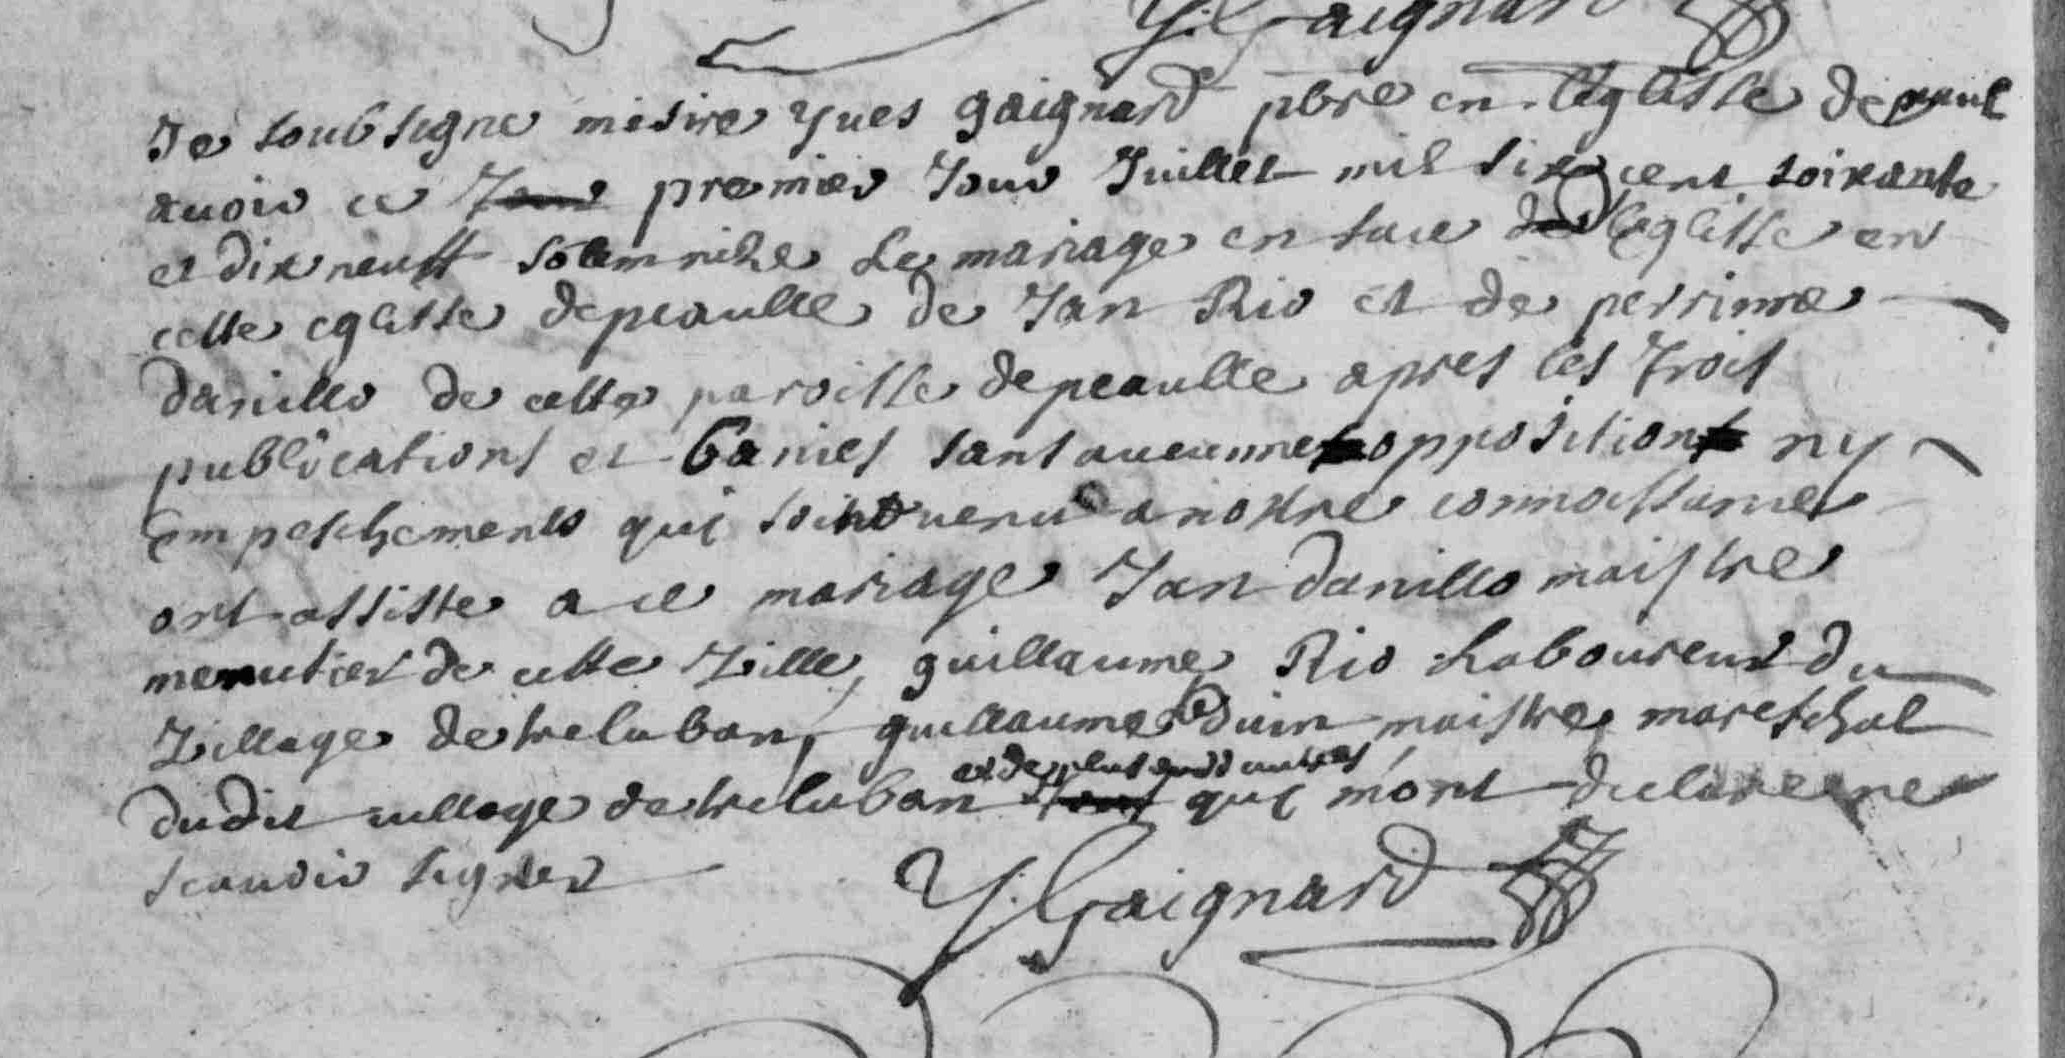 Y. Gaignard
Je soubsigne misire Yves gaignard pbre en leglisse de peaule
avoir ce premier Jour Juillet mil six cent soixante
et dix neuff solemnize Le mariage en face de leglisse en
cette eglisse depeaulle de Jan Rio et de perrinne
danillo de cette paroisse depeaulle apres les trois
publications et banies sans aucunne opposition ny
empeschements qui soint venu a nostre connoissance
ont assiste a ce mariage Jan danillo maistre
menutier de cette ville, guillaume Rio Laboureur du
village de treluban, guillaume Seduin maistre mareschal
et de plusieurs autres,
dudit village de treluban qui mont declare ne
scauoir signer
Y. Gaignard